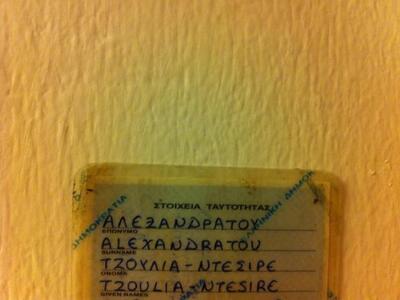 ΣΤΟΙΧΕΙΑ ΤΑΥΤΟΤΗΤΑΣ
ΑΛΕΞΑΝΔΡΑΤΟΥ
ΕΠΩΝΥΜΟ
ALEXANDRATOU
SURNAME
ΤΖΟΥΛΙΑ-ΝΤΕΣΙΡΕ
ΟΝΟΜΑ
TZOULIA-NTESIRE
GIVEN NAMES